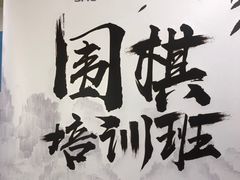 围棋
培训班